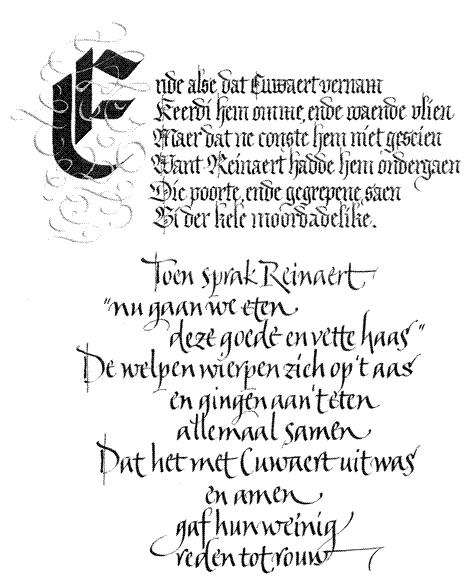 Ende alse dat Cuwaert vernam
Keerdi hem omme, ende waende vlien
Maer dat ne conste hem niet gescien
Want Reinaert hadde hem ondergaen
Die poorte, ende gegrepene saen
Bi der kele moordadelike.
Toen sprak Reinaert,
"nu gaan we eten
deze goede en vette haas"
De welpen wierpen zich op 't aas
en gingen aan 't eten
allemaal samen
Dat het met Cuwaert uit was
en amen
gaf hun weinig
reden tot rouw